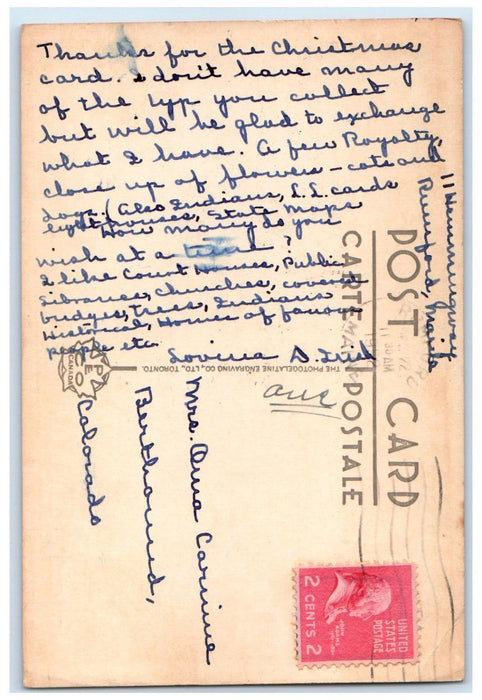 Thanks for the Christmas
card. I don't have many
of the typ you collect
but will be glad to exchange
what I have. A few Royalty,
close up of flowers - cats and
dogs. (Also Indians, L.L. cards
lighthouses, State Maps
How many do you
wish at a time?
I like Court Houses, Public
libraries, churches, covered
bridges, trees, Indians
Historical, Homes of famous
people etc.
Lovina D.
11 Hemmingway
Rumford, Maine
POST CARD
CARTE POSTALE
THE PHOTOGELATINE ENGRAVING CO., LTD., TORONTO.
PECO
CANADA
ans
Mrs. Oma Carmine
Berthoud,
Colorado
11 30 AM
UNITED
STATES
POSTAGE
JOHN
ADAMS
2 CENTS 2